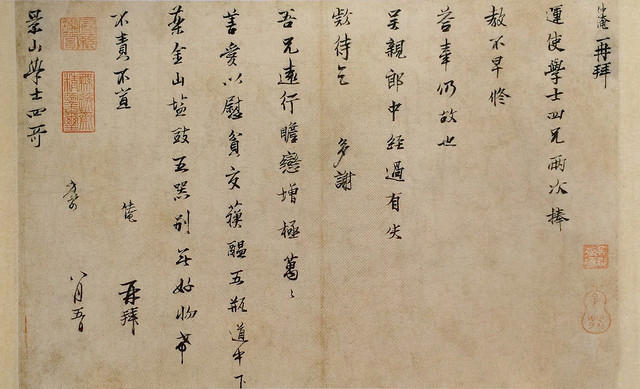 奄再拜
運使學士四兄兩次捧
教不早修
荅奉仍故也
呈親郎中經過有失
欵待乞
多謝
吾兄遠行瞻戀增極萬〻
善愛以慰貧交蘋醖五瓶道中下
藥金山塩豉五器別無好物希
不責不宣
奄 再拜
景山學士四哥
八月五日